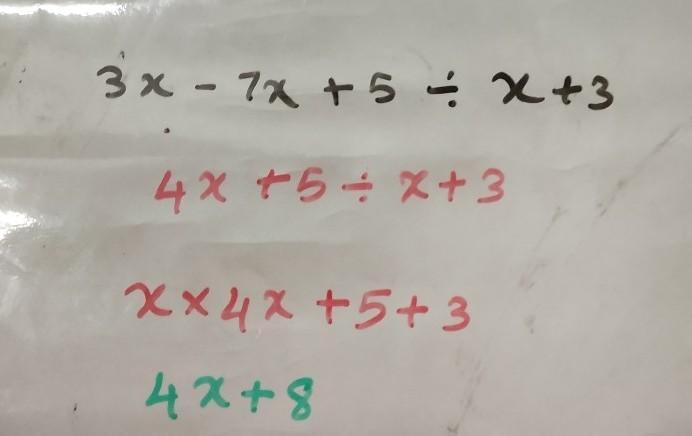 3x - 7x + 5 ÷ x + 3
4x + 5 ÷ x + 3
x × 4x + 5 + 3
4x + 8